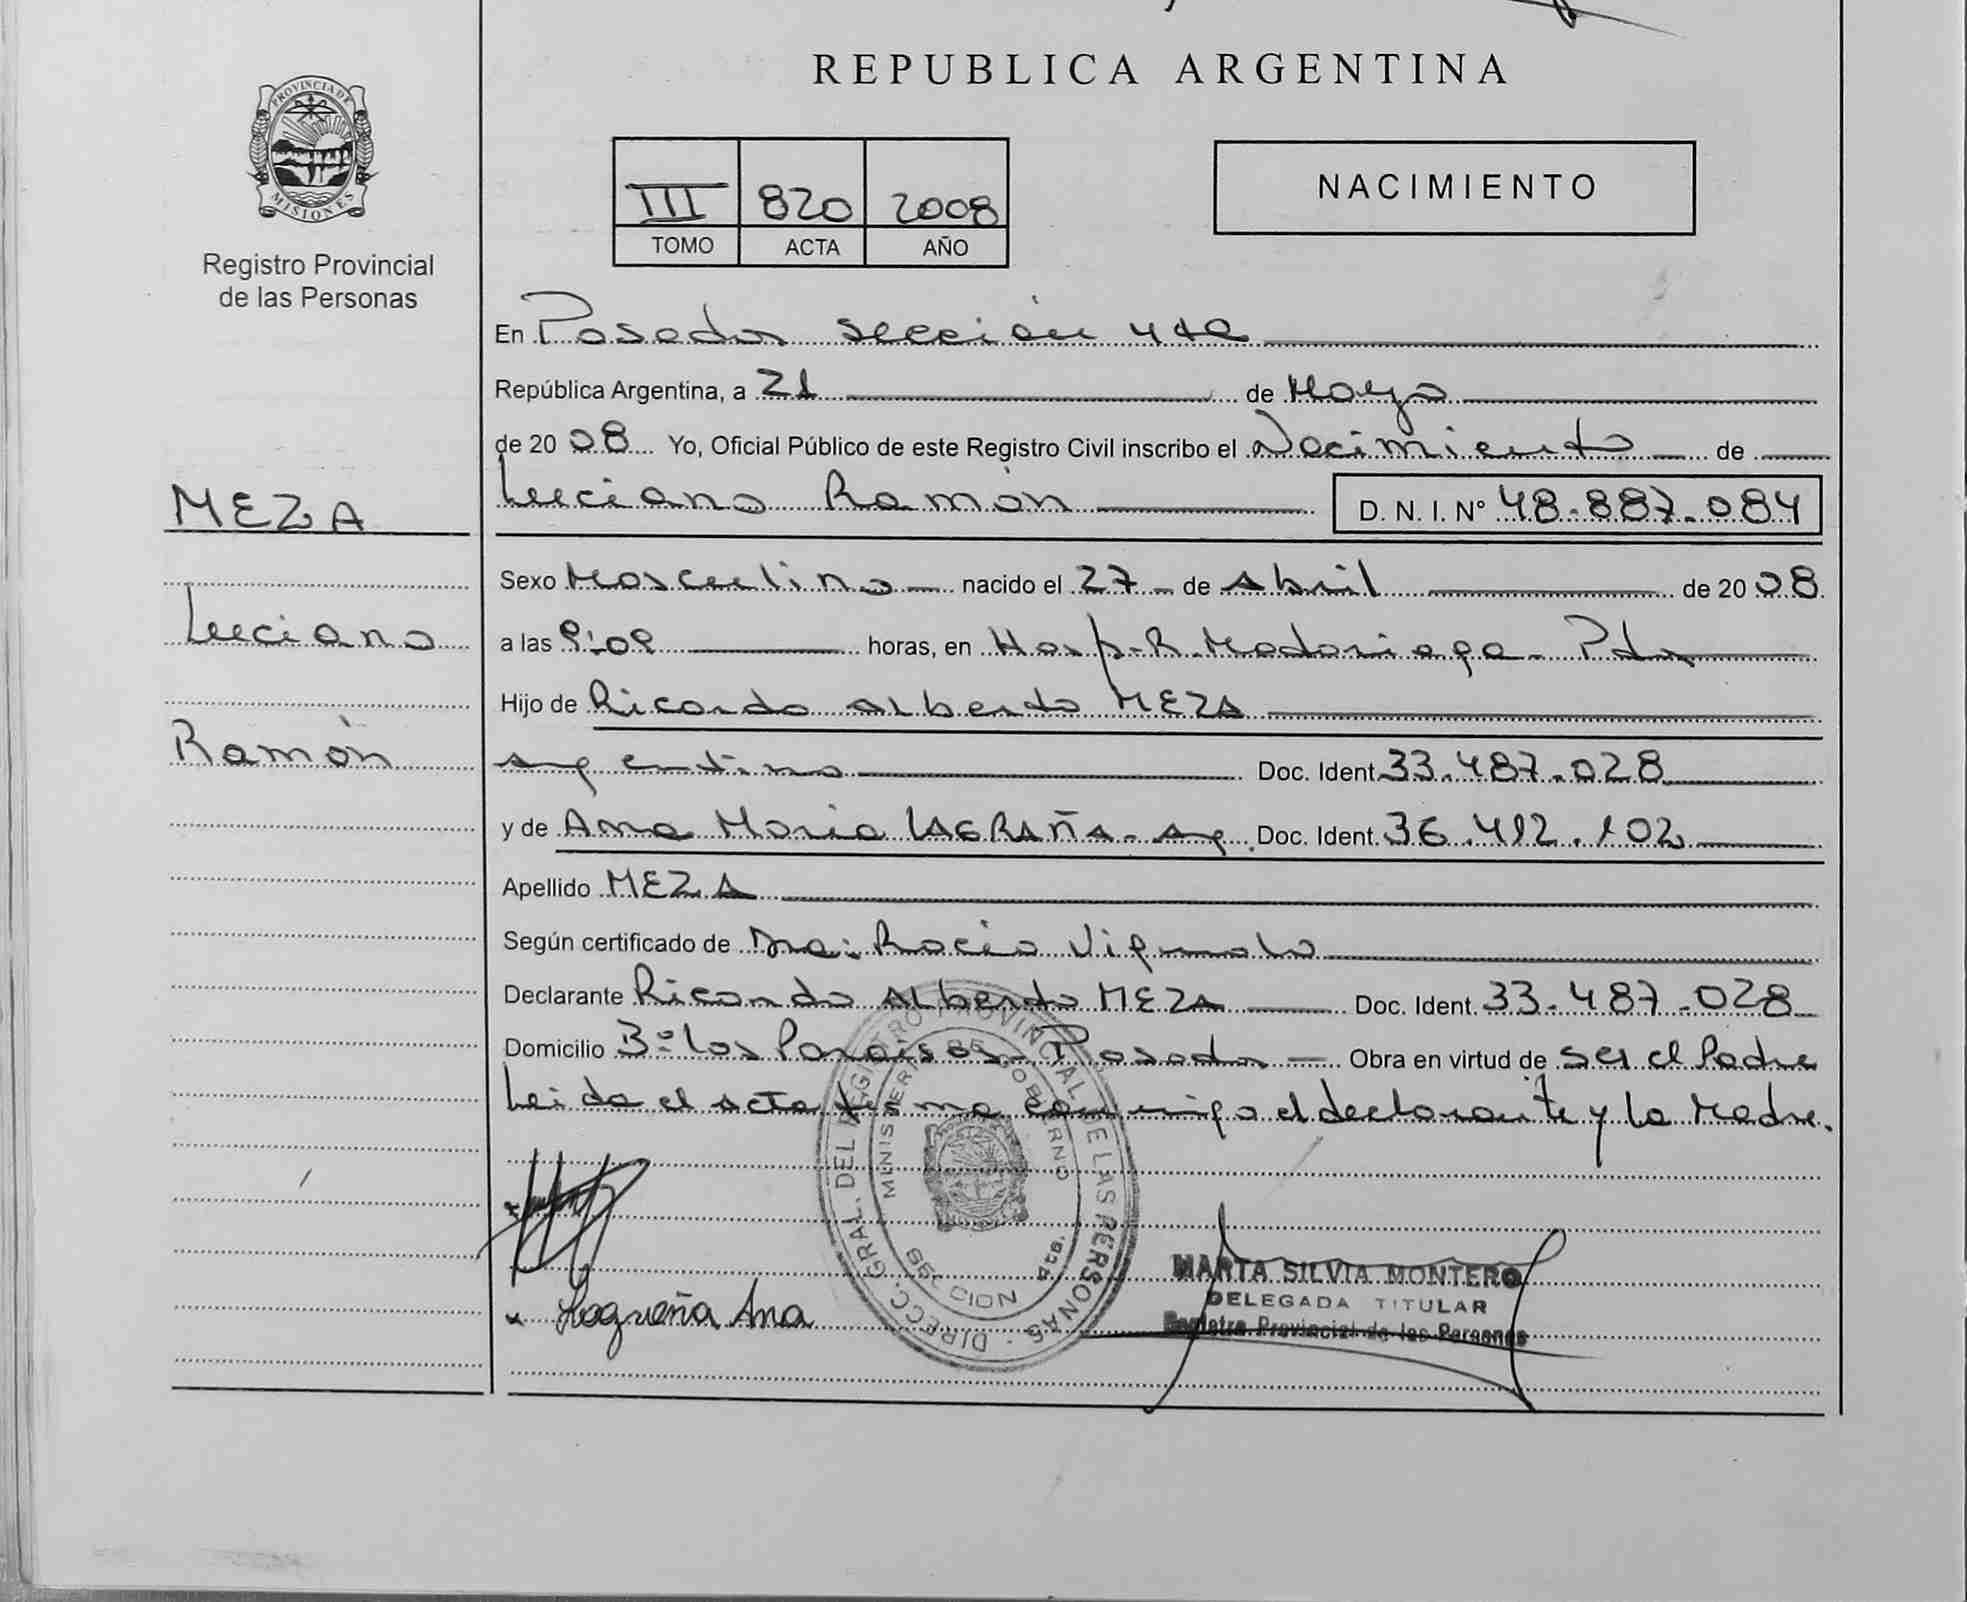 REPUBLICA ARGENTINA
PROVINCIA DE
MISIONES
Registro Provincial
de las Personas
III 820 2008
TOMO ACTA AÑO
NACIMIENTO
En Posadas sección 4ta
República Argentina, a 21 de Mayo
de 2008 Yo, Oficial Público de este Registro Civil inscribo el Nacimiento de
Luciano Ramón D. N. I. Nº 48.887.084
MEZA
Luciano
Ramón
Sexo Masculino nacido el 27 de Abril de 2008
a las horas, en Hosp. R. Madariaga - Pdas
Hijo de Ricardo Alberto MEZA
argentino Doc. Ident. 33.487.028
y de Ana Maria Arg. Doc. Ident. 36.412.102
Apellido MEZA
Según certificado de Dra: Rocio
Declarante Ricardo Alberto MEZA Doc. Ident. 33.487.028
Domicilio Bº Los Paraisos - Posadas Obra en virtud de ser el Padre
Leida el acta firma conmigo el declarante y la Madre.
DIRECC. GRAL. DEL REGISTRO PROVINCIAL DE LAS PERSONAS
MINISTERIO DE GOBIERNO
Ana
MARTA SILVIA MONTERO
DELEGADA TITULAR
Registro Provincial de las Personas